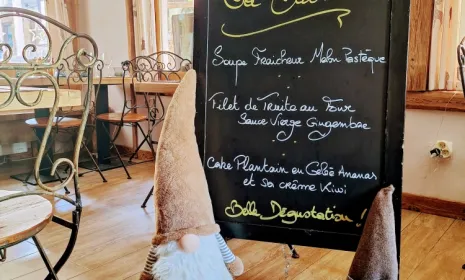 Soupe Fraîcheur Melon Pastèque
Filet de Truite au Four
Sauce Vierge Gingembre
Cake Plantain ou Gelée Ananas
et sa crème Kiwi
Belle Dégustation !